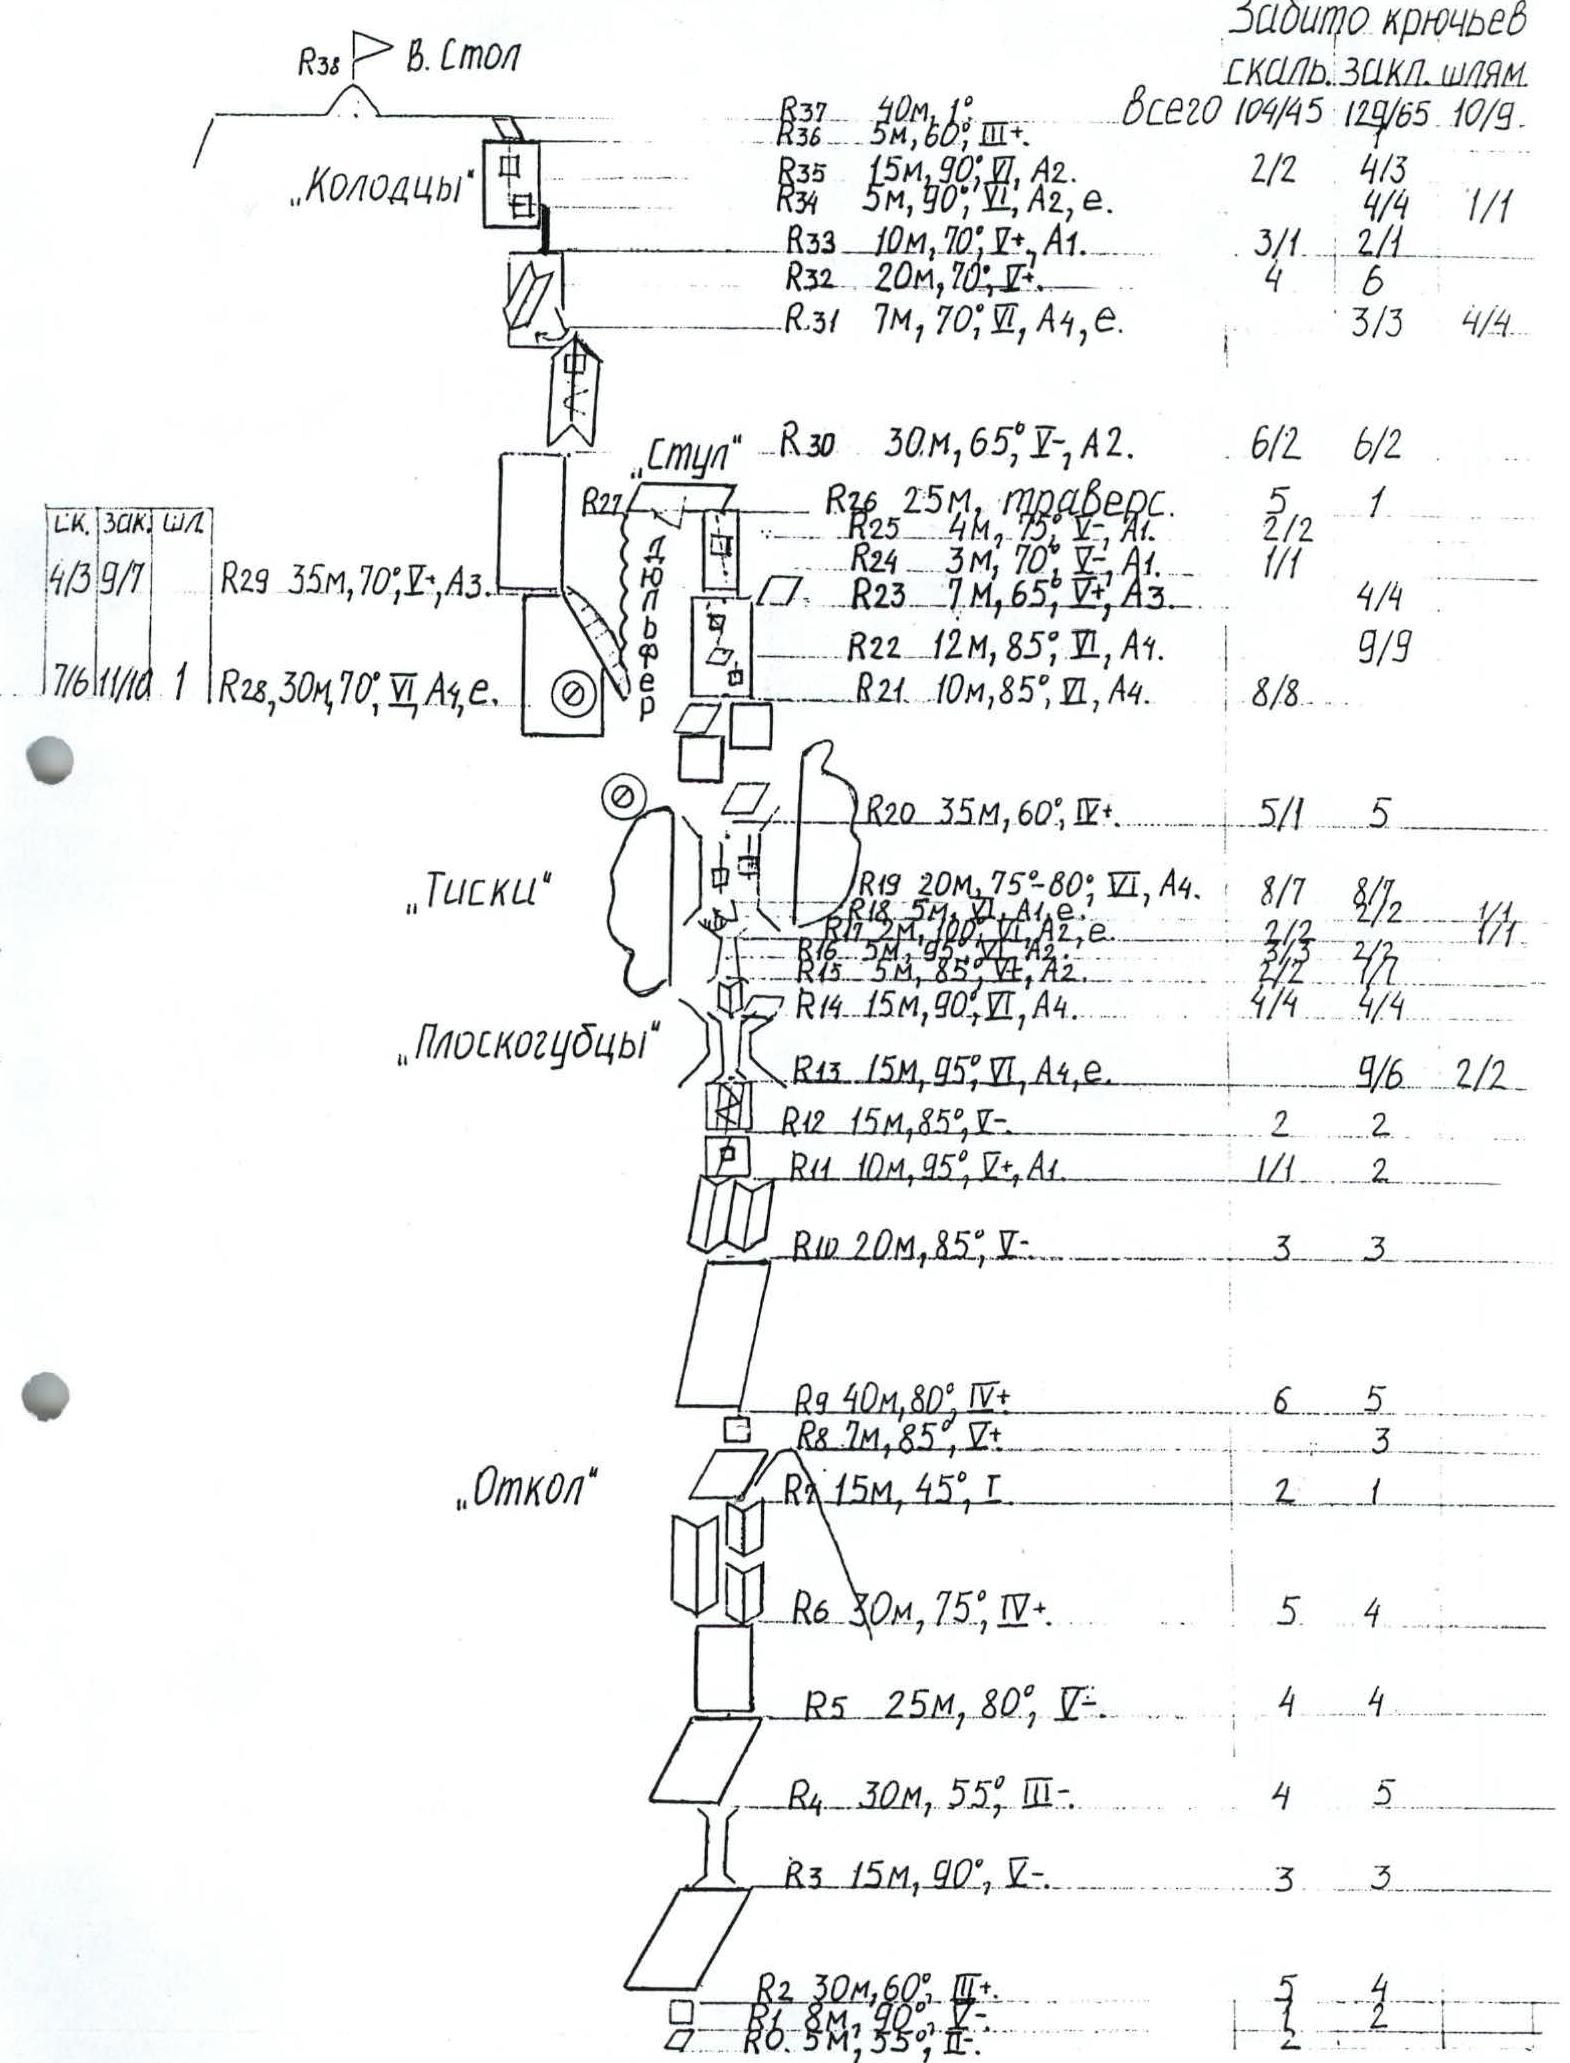 Забито крючьев
скаль. закл. шлям.
R38 В. Стол
R37 40м, 1°. Всего 104/45 129/65 10/9.
R36 5м, 60°, III+. 1
„Колодцы"
R35 15м, 90°, VI, А2. 2/2 4/3
R34 5м, 90°, VI, А2, е. 4/4 1/1
R33 10м, 70°, V+, А1. 3/1 2/1
R32 20м, 70°, V+. 4 6
R31 7м, 70°, VI, А4, е. 3/3 4/4
R30 30м, 65°, V-, А2. 6/2 6/2
„Стул"
R27
R26 25м, траверс. 5 1
R25 4м, 75°, V-, А1. 2/2
R24 3м, 70°, V-, А1. 1/1
R23 7м, 65°, V+, А3. 4/4
R22 12м, 85°, VI, А4. 9/9
R21 10м, 85°, VI, А4. 8/8
дюльфер
ск. зак. шл.
4/3 9/7 R29 35м, 70°, V+, А3.
7/6 11/10 1 R28, 30м, 70°, VI, А4, е.
R20 35м, 60°, IV+. 5/1 5
„Тиски"
R19 20м, 75°-80°, VI, А4. 8/7 8/7
R18 5м, VI, А1, е. 2/2 1/1
R17 2м, 100°, VI, А2, е. 2/2 1/1
R16 5м, 95°, VI, А2. 3/3 2/2
R15 5м, 85°, V+, А2. 2/2 1/1
R14 15м, 90°, VI, А4. 4/4 4/4
„Плоскогубцы"
R13 15м, 95°, VI, А4, е. 9/6 2/2
R12 15м, 85°, V-. 2 2
R11 10м, 95°, V+, А1. 1/1 2
R10 20м, 85°, V-. 3 3
R9 40м, 80°, IV+ 6 5
R8 7м, 85°, V+ 3
„Откол"
R7 15м, 45°, I 2 1
R6 30м, 75°, IV+. 5 4
R5 25м, 80°, V-. 4 4
R4 30м, 55°, III-. 4 5
R3 15м, 90°, V-. 3 3
R2 30м, 60°, III+. 5 4
R1 8м, 90°, V-. 1 2
R0. 5м, 55°, II-. 2